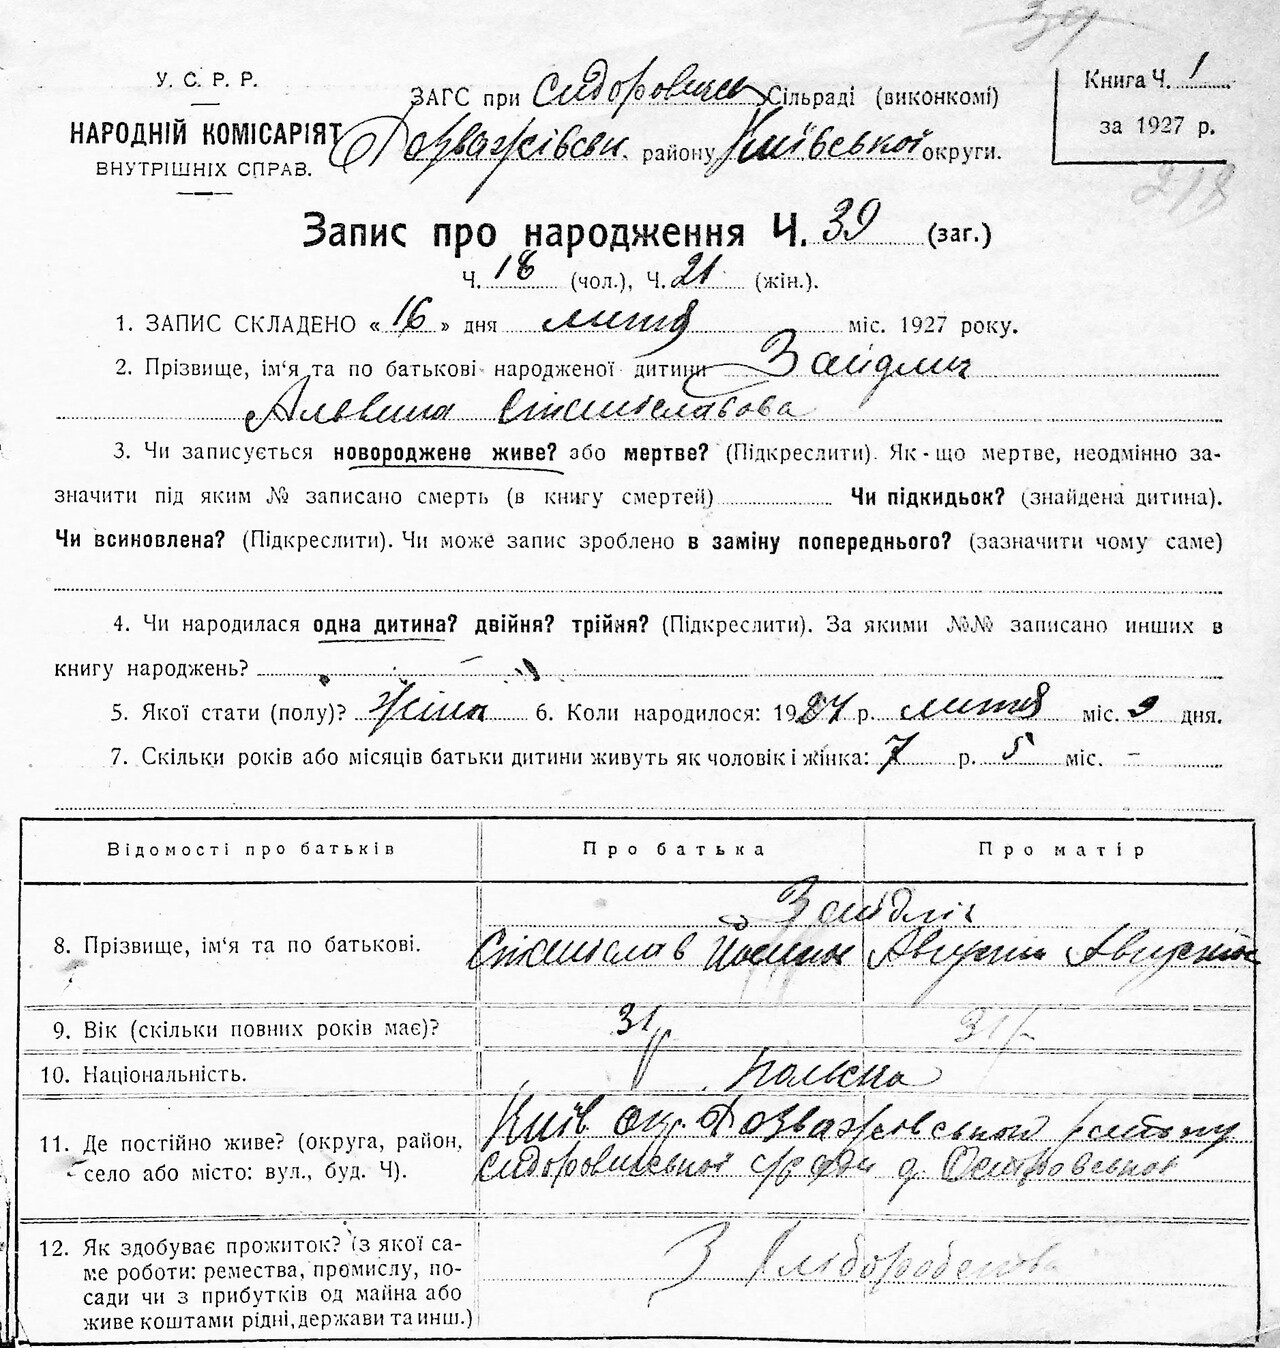 39
У. С. Р. Р.
НАРОДНІЙ КОМІСАРІЯТ
ВНУТРІШНІХ СПРАВ.
ЗАГС при Сидорович Сільраді (виконкомі)
Розважівськ. району Київської округи.
Книга Ч. 1
за 1927 р.
218
Запис про народження Ч. 39 (заг.)
Ч. 18 (чол.), Ч. 21 (жін.).
1. ЗАПИС СКЛАДЕНО « 16 » дня лютня міс. 1927 року.
2. Прізвище, ім'я та по батькові народженої дитини Зайдлич
Альвина Станіславова
3. Чи записується новороджене живе? або мертве? (Підкреслити). Як-що мертве, неодмінно за-
значити під яким № записано смерть (в книгу смертей) Чи підкидьок? (знайдена дитина).
Чи всиновлена? (Підкреслити). Чи може запис зроблено в заміну попереднього? (зазначити чому саме)
4. Чи народилася одна дитина? двійня? трійня? (Підкреслити). За якими №№ записано инших в
книгу народжень? –
5. Якої статі (полу)? жіноч 6. Коли народилося: 1927 р. лютня міс. 9 дня.
7. Скільки років або місяців батьки дитини живуть як чоловік і жінка: 7 р. 5 міс. –
Відомості про батьків Про батька Про матір
Зайдліч
8. Прізвище, ім'я та по батькові. Станіслав Йосипов Августа Август
9. Вік (скільки повних років має)? 31 31
10. Національність. польска
11. Де постійно живе? (округа, район, Київ окр. Розважовського району
село або місто: вул., буд. Ч). Сидоровицької с/ради
12. Як здобуває прожиток? (з якої са-
ме роботи: ремества, промислу, по-
сади чи з прибутків од майна або
живе коштами рідні, держави та инш.)
З хліборобства